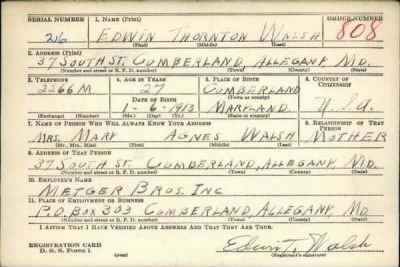 SERIAL NUMBER 1. NAME (Print) ORDER NUMBER
216 EDWIN THORNTON WALSH 808
(First) (Middle) (Last)
2. ADDRESS (Print)
37 SOUTH ST. CUMBERLAND, ALLEGANY, MD.
(Number and street or R. F. D. number) (Town) (County) (State)
3. TELEPHONE 4. AGE IN YEARS 5. PLACE OF BIRTH 6. COUNTRY OF CITIZENSHIP
2266 M. 27 CUMBERLAND
DATE OF BIRTH (Town or county)
1-6-1913 MARYLAND U.S.A.
(Exchange) (Number) (Mo.) (Day) (Yr.) (State or country)
7. NAME OF PERSON WHO WILL ALWAYS KNOW YOUR ADDRESS 8. RELATIONSHIP OF THAT PERSON
MRS. MARY AGNES WALSH MOTHER
(Mr., Mrs., Miss) (First) (Middle) (Last)
9. ADDRESS OF THAT PERSON
37 SOUTH ST. CUMBERLAND, ALLEGANY, MD.
(Number and street or R. F. D. number) (Town) (County) (State)
10. EMPLOYER'S NAME
METGER BROS. INC
11. PLACE OF EMPLOYMENT OR BUSINESS
P.O. BOX 303 CUMBERLAND, ALLEGANY, MD
(Number and street or R. F. D. number) (Town) (County) (State)
I AFFIRM THAT I HAVE VERIFIED ABOVE ANSWERS AND THAT THEY ARE TRUE.
REGISTRATION CARD
D. S. S. FORM 1 Edwin T. Walsh
(Registrant's signature)